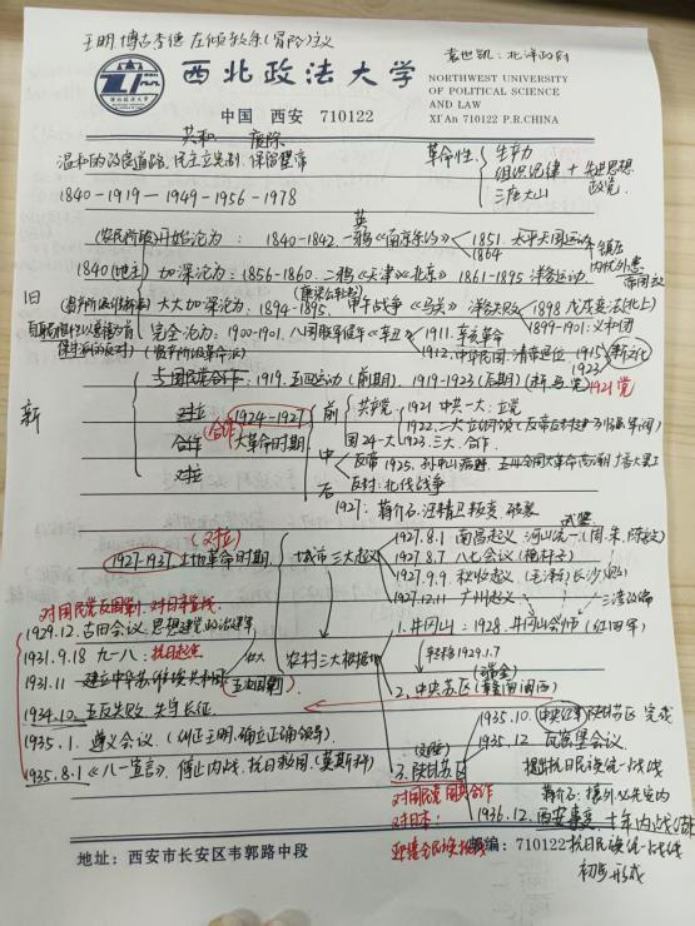 王明 博古 李德 左倾教条(冒险)主义
袁世凯：北洋政府
西北政法大学
NORTHWEST UNIVERSITY
OF POLITICAL SCIENCE
AND LAW
中国 西安 710122
XI'An 710122 P.R.CHINA
共和 废除
温和的改良道路 民主立宪制 保留皇帝
革命性
生产力
组织纪律 + 先进思想
政党
三座大山
1840-1919-1949-1956-1978
英
(农民阶级)开始沦为： 1840-1842 一鸦《南京条约》
1851 太平天国运动
1864
1840(地主) 加深沦为：1856-1860 二鸦《天津》《北京》 1861-1895 洋务运动
内忧外患
旧
大大加深沦为：1894-1895 甲午战争《马关》 洋务失败
1898 戊戌变法(北上)
1899-1901：义和团
完全沦为：1900-1901 八国联军侵华《辛丑》
(资产阶级革命派)
1911 辛亥革命
1912 中华民国 清帝退位
1915
1923
新文化
新
与国民党合作：1919 五四运动 (前期) 1919-1923(后期)
1921党
对立
合作
对立
(合作)
1924-1927
大革命时期
前
共产党
1921 中共一大：立党
1922 二大
国 24 一大
1923 三大 合作
中
反帝 1925
后
反封：北伐战争
1927：蒋介石 汪精卫 叛变
武装
(对立)
1927-1937 土地革命时期
城市三大起义
1927.8.1 南昌起义
1927.8.7 八七会议
1927.9.9 秋收起义 (毛泽东) 长沙
1927.12.11 广州起义
三湾改编
1929.12 古田会议 思想建党 政治建军
1931.9.18 九一八：抗日起点
1931.11 建立中华苏维埃共和国
农村三大根据地
1.井冈山：1928 井冈山会师 (红四军)
1929.1.7
(瑞金)
2.中央苏区 (赣南闽西)
1934.10 五反失败 失守长征
1935.1 遵义会议 (纠正王明 确立正确领导)
1935.8.1《八一宣言》停止内战 抗日救国 (莫斯科)
3.陕甘苏区
1935.10 (中央红军) 陕甘苏区 完成
1935.12 瓦窑堡会议
提出抗日民族统一战线
蒋介石：攘外必先安内
对国民党 国共合作
对日本：
1936.12 西安事变 十年内战结束
地址：西安市长安区韦郭路中段
邮编：710122
抗日民族统一战线
初步形成